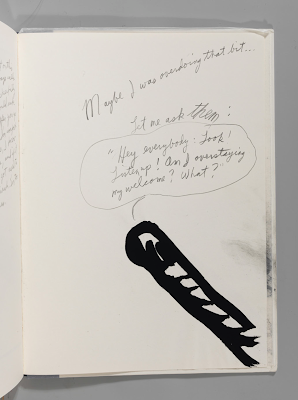 Maybe I was overdoing that but...
Let me ask them:
"Hey everybody: Look!
Listen up! Am I overstaying
my welcome? What?"